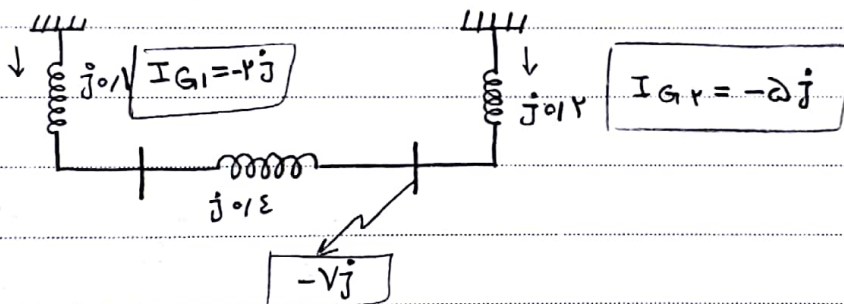 j۰/۱ I G۱ = -۲j
j۰/۲ I G۲ = -۵j
j۰/٤
-۷j